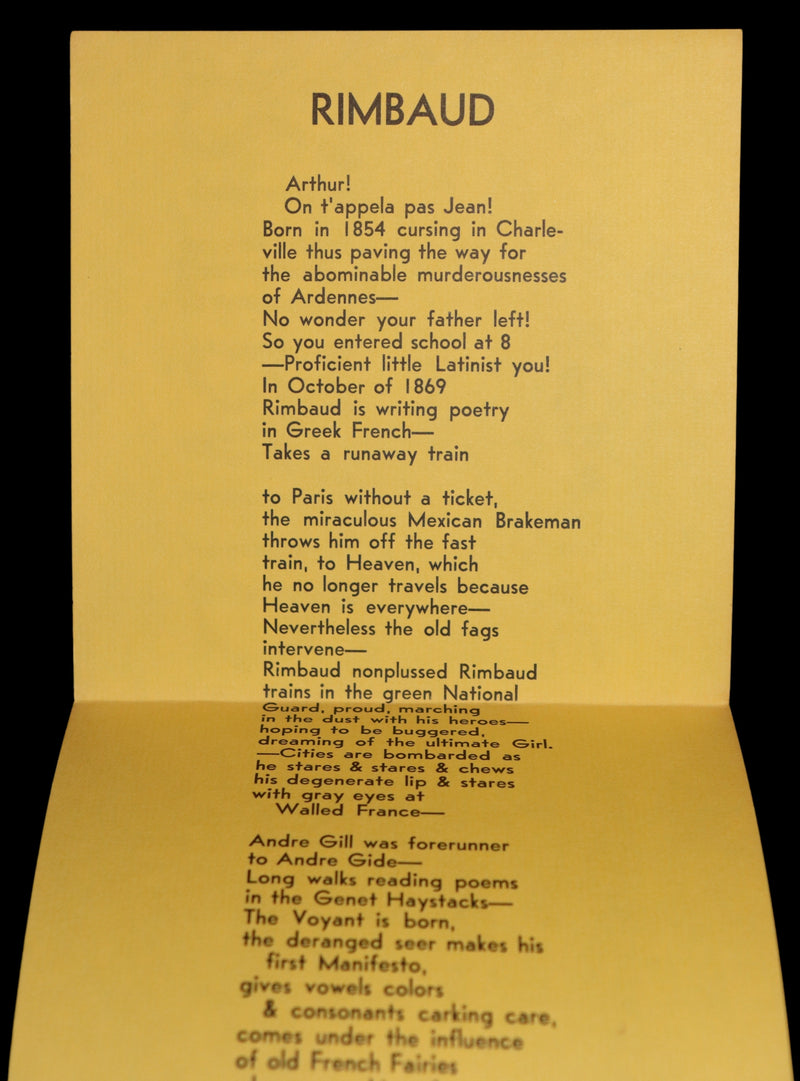 RIMBAUD
Arthur!
On t'appela pas Jean!
Born in 1854 cursing in Charle-
ville thus paving the way for
the abominable murderousnesses
of Ardennes—
No wonder your father left!
So you entered school at 8
—Proficient little Latinist you!
In October of 1869
Rimbaud is writing poetry
in Greek French—
Takes a runaway train
to Paris without a ticket,
the miraculous Mexican Brakeman
throws him off the fast
train, to Heaven, which
he no longer travels because
Heaven is everywhere—
Nevertheless the old fags
intervene—
Rimbaud nonplussed Rimbaud
trains in the green National
Guard, proud, marching
in the dust with his heroes—
hoping to be buggered,
dreaming of the ultimate Girl.
—Cities are bombarded as
he stares & stares & chews
his degenerate lip & stares
with gray eyes at
Walled France—
Andre Gill was forerunner
to Andre Gide—
Long walks reading poems
in the Genet Haystacks—
The Voyant is born,
the deranged seer makes his
first Manifesto,
gives vowels colors
& consonants carking care,
comes under the influence
of old French Fairies